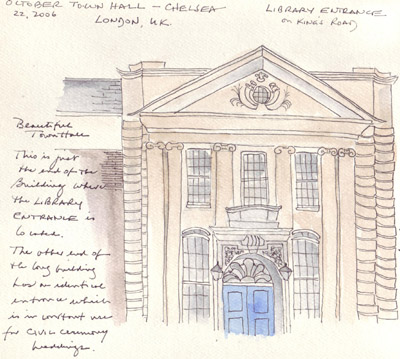 OCTOBER TOWN HALL - CHELSEA
22, 2006 LONDON, U.K.
LIBRARY ENTRANCE
on KING'S ROAD
Beautiful
Town Hall
This is just
the end of the
Building where
the LIBRARY
ENTRANCE is
located.
The other end of
the long building
has an identical
entrance which
is in constant use
for CIVIL ceremony
Weddings.